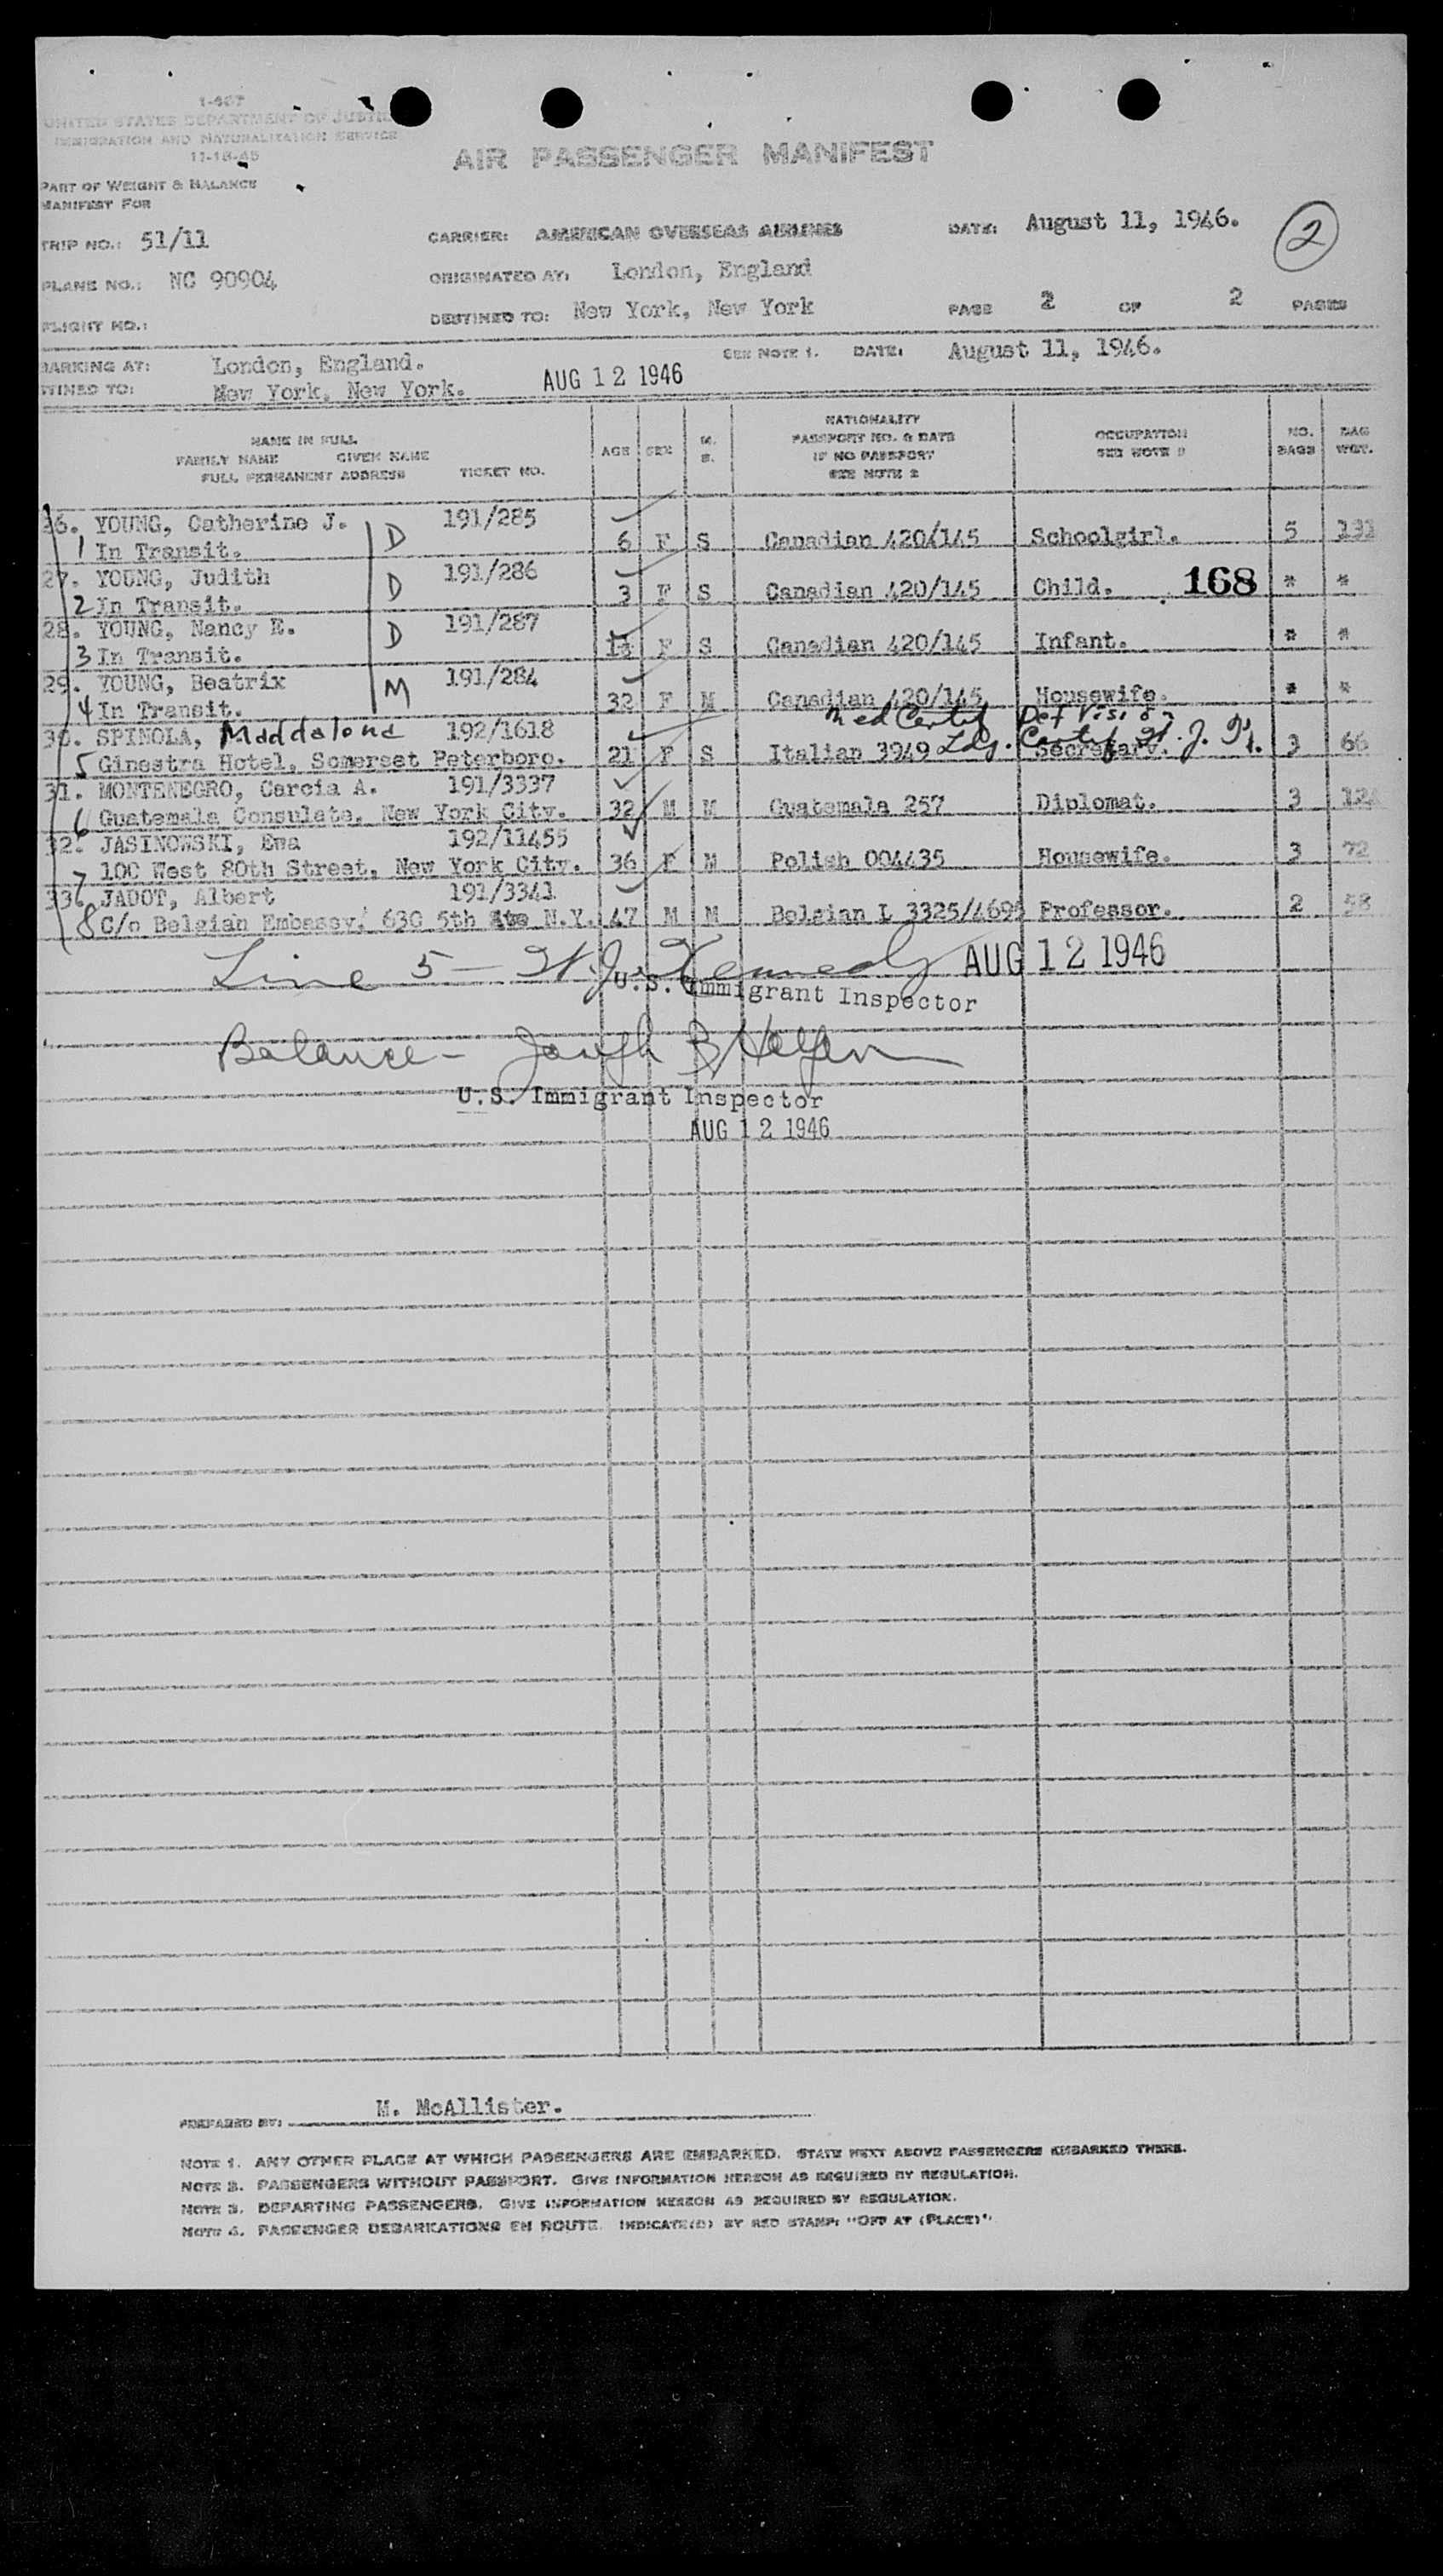 1-467
UNITED STATES DEPARTMENT OF JUSTICE
IMMIGRATION AND NATURALIZATION SERVICE
11-18-45
AIR PASSENGER MANIFEST
PART OF WEIGHT & BALANCE
MANIFEST FOR
TRIP NO.: 51/11 CARRIER: AMERICAN OVERSEAS AIRLINES DATE: August 11, 1946. 2
PLANE NO.: NC 90904 ORIGINATED AT: London, England
FLIGHT NO.: DESTINED TO: New York, New York PAGE 2 OF 2 PAGES
BARKING AT: London, England. SEE NOTE 1. DATE: August 11, 1946.
TINED TO: New York, New York. AUG 12 1946
NAME IN FULL
FAMILY NAME GIVEN NAME
FULL PERMANENT ADDRESS TICKET NO. AGE SEX M. S. NATIONALITY PASSPORT NO. & DATE IF NO PASSPORT SEE NOTE 2 OCCUPATION SEE NOTE 3 NO. BAGS BAG WGT.
26. YOUNG, Catherine J. 191/285
1 In Transit. D 6 F S Canadian 420/145 Schoolgirl. 5 131
27. YOUNG, Judith 191/286
2 In Transit. D 3 F S Canadian 420/145 Child. 168 * *
28. YOUNG, Nancy E. 191/287
3 In Transit. D F S Canadian 420/145 Infant. * *
29. YOUNG, Beatrix 191/284
4 In Transit. M 32 F M Canadian 420/145 Housewife. * *
30. SPINOLA, Maddalena 192/1618 Med Certif Def Vision
5 Ginestra Hotel, Somerset Peterboro. 21 F S Italian 3949 Ldg. Certif Secretary. 3 66
31. MONTENEGRO, Carcia A. 191/3337
6 Guatemala Consulate, New York City. 32 M M Guatemala 257 Diplomat. 3
32. JASINOWSKI, Ewa 192/11455
7 100 West 80th Street, New York City. 36 F M Polish 004435 Housewife. 3 72
33. JADOT, Albert 191/3341
8 C/o Belgian Embassy, 630 5th Ave N.Y. 47 M M Belgian L 3325/4695 Professor. 2 58
Line 5 - W. J. Kennedy AUG 12 1946
U.S. Immigrant Inspector
Balance - Joseph B
U.S. Immigrant Inspector
AUG 12 1946
PREPARED BY: M. McAllister.
NOTE 1. ANY OTHER PLACE AT WHICH PASSENGERS ARE EMBARKED. STATE NEXT ABOVE PASSENGERS EMBARKED THERE.
NOTE 2. PASSENGERS WITHOUT PASSPORT. GIVE INFORMATION HEREON AS REQUIRED BY REGULATION.
NOTE 3. DEPARTING PASSENGERS. GIVE INFORMATION HEREON AS REQUIRED BY REGULATION.
NOTE 4. PASSENGER DEBARKATIONS EN ROUTE. INDICATE(D) BY RED STAMP: "OFF AT (PLACE)".